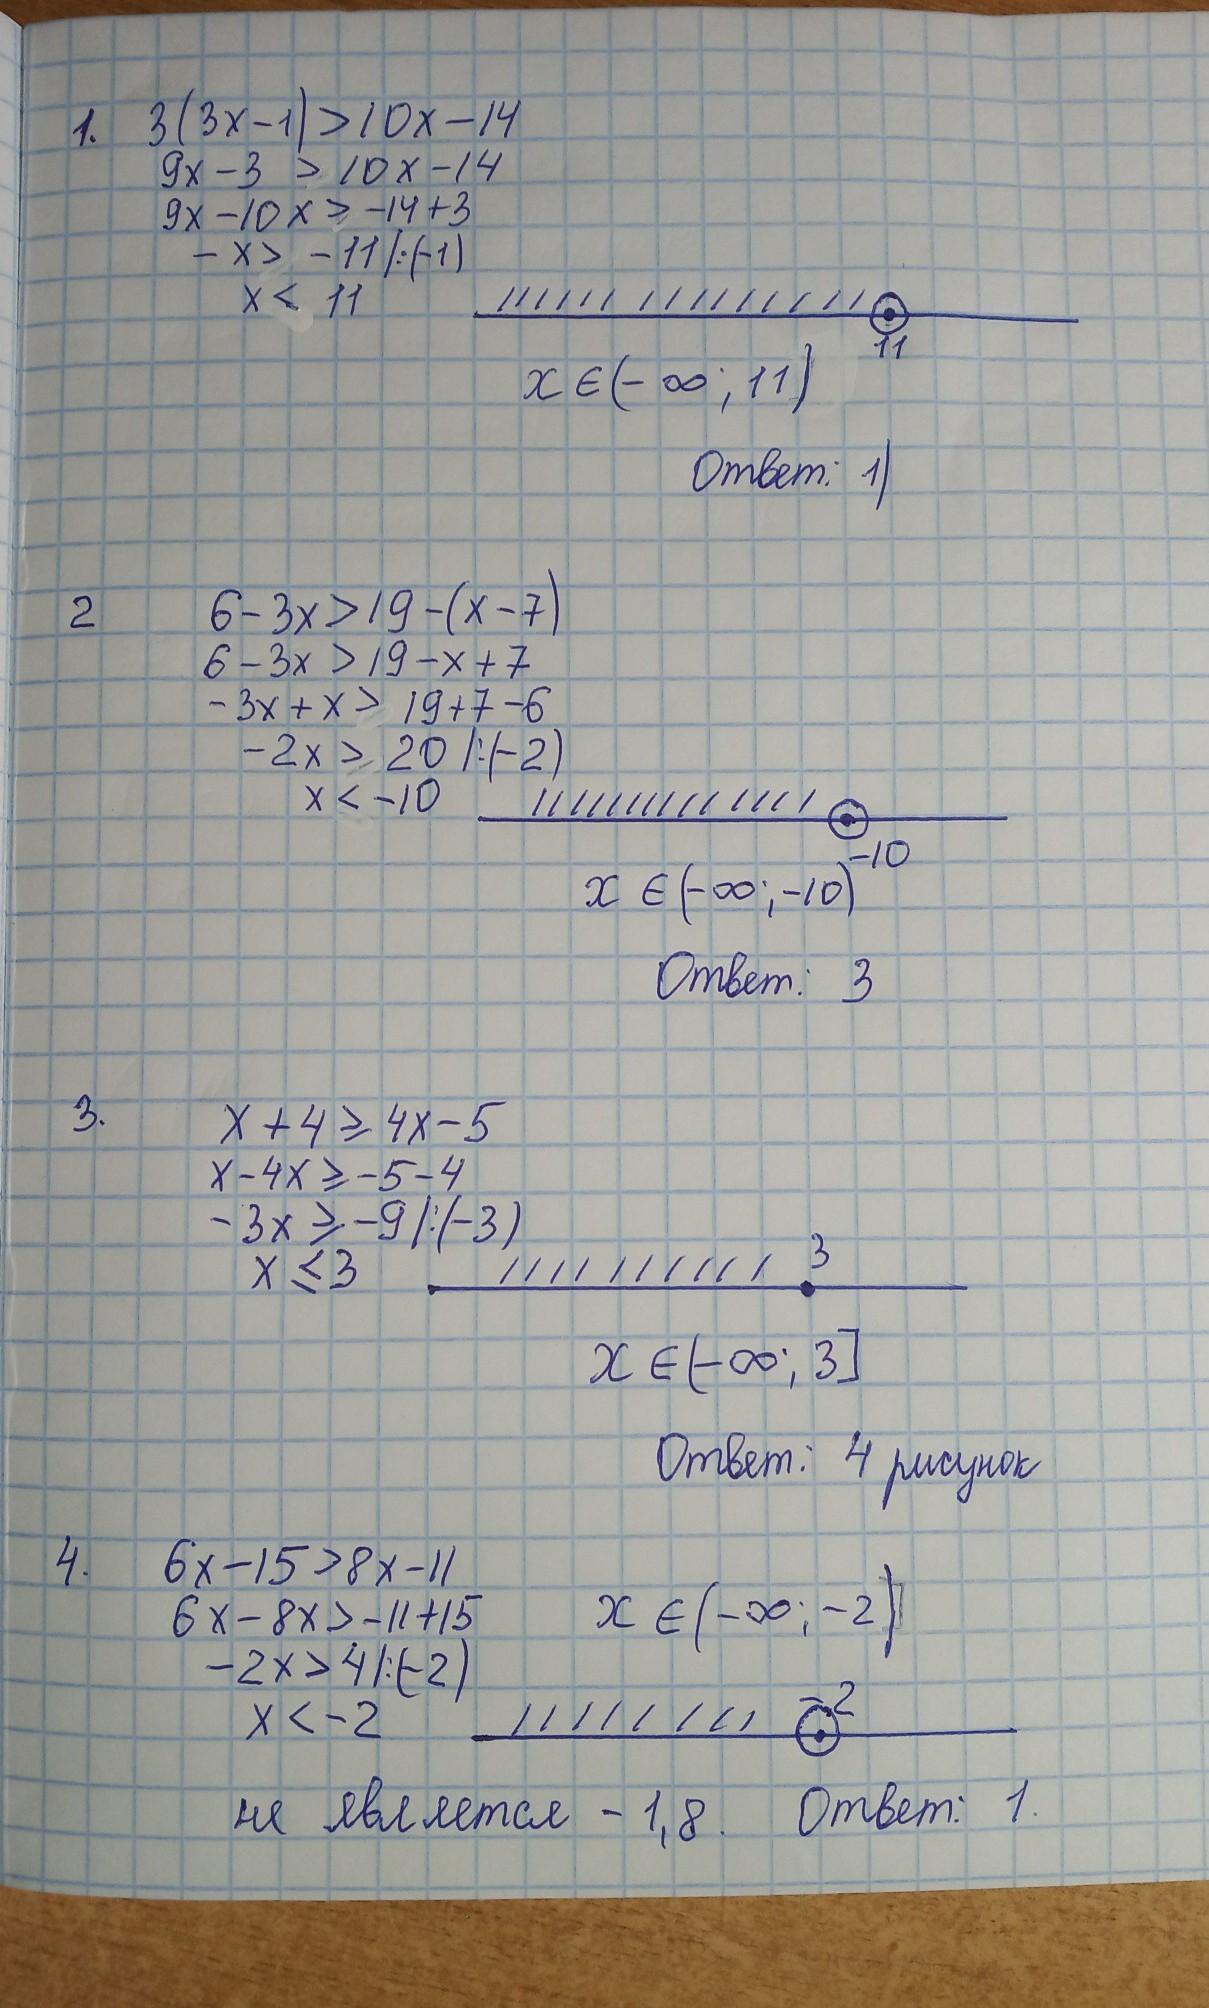 1. 3(3x-1)>10x-14
9x-3 > 10x-14
9x-10x > -14+3
-x > -11 |:(-1)
x < 11
11
x ∈ (-∞; 11)
Ответ: 1)
2 6-3x>19-(x-7)
6-3x>19-x+7
-3x+x> 19+7-6
-2x > 20 |:(-2)
x < -10
-10
x ∈ (-∞; -10)
Ответ: 3
3. x+4 ≥ 4x-5
x-4x ≥ -5-4
-3x ≥ -9 |:(-3)
x ≤ 3
3
x ∈ (-∞; 3]
Ответ: 4 рисунок
4. 6x-15>8x-11
6x-8x>-11+15 x ∈ (-∞; -2)
-2x>4 |:(-2)
x < -2
-2
не является -1,8. Ответ: 1.